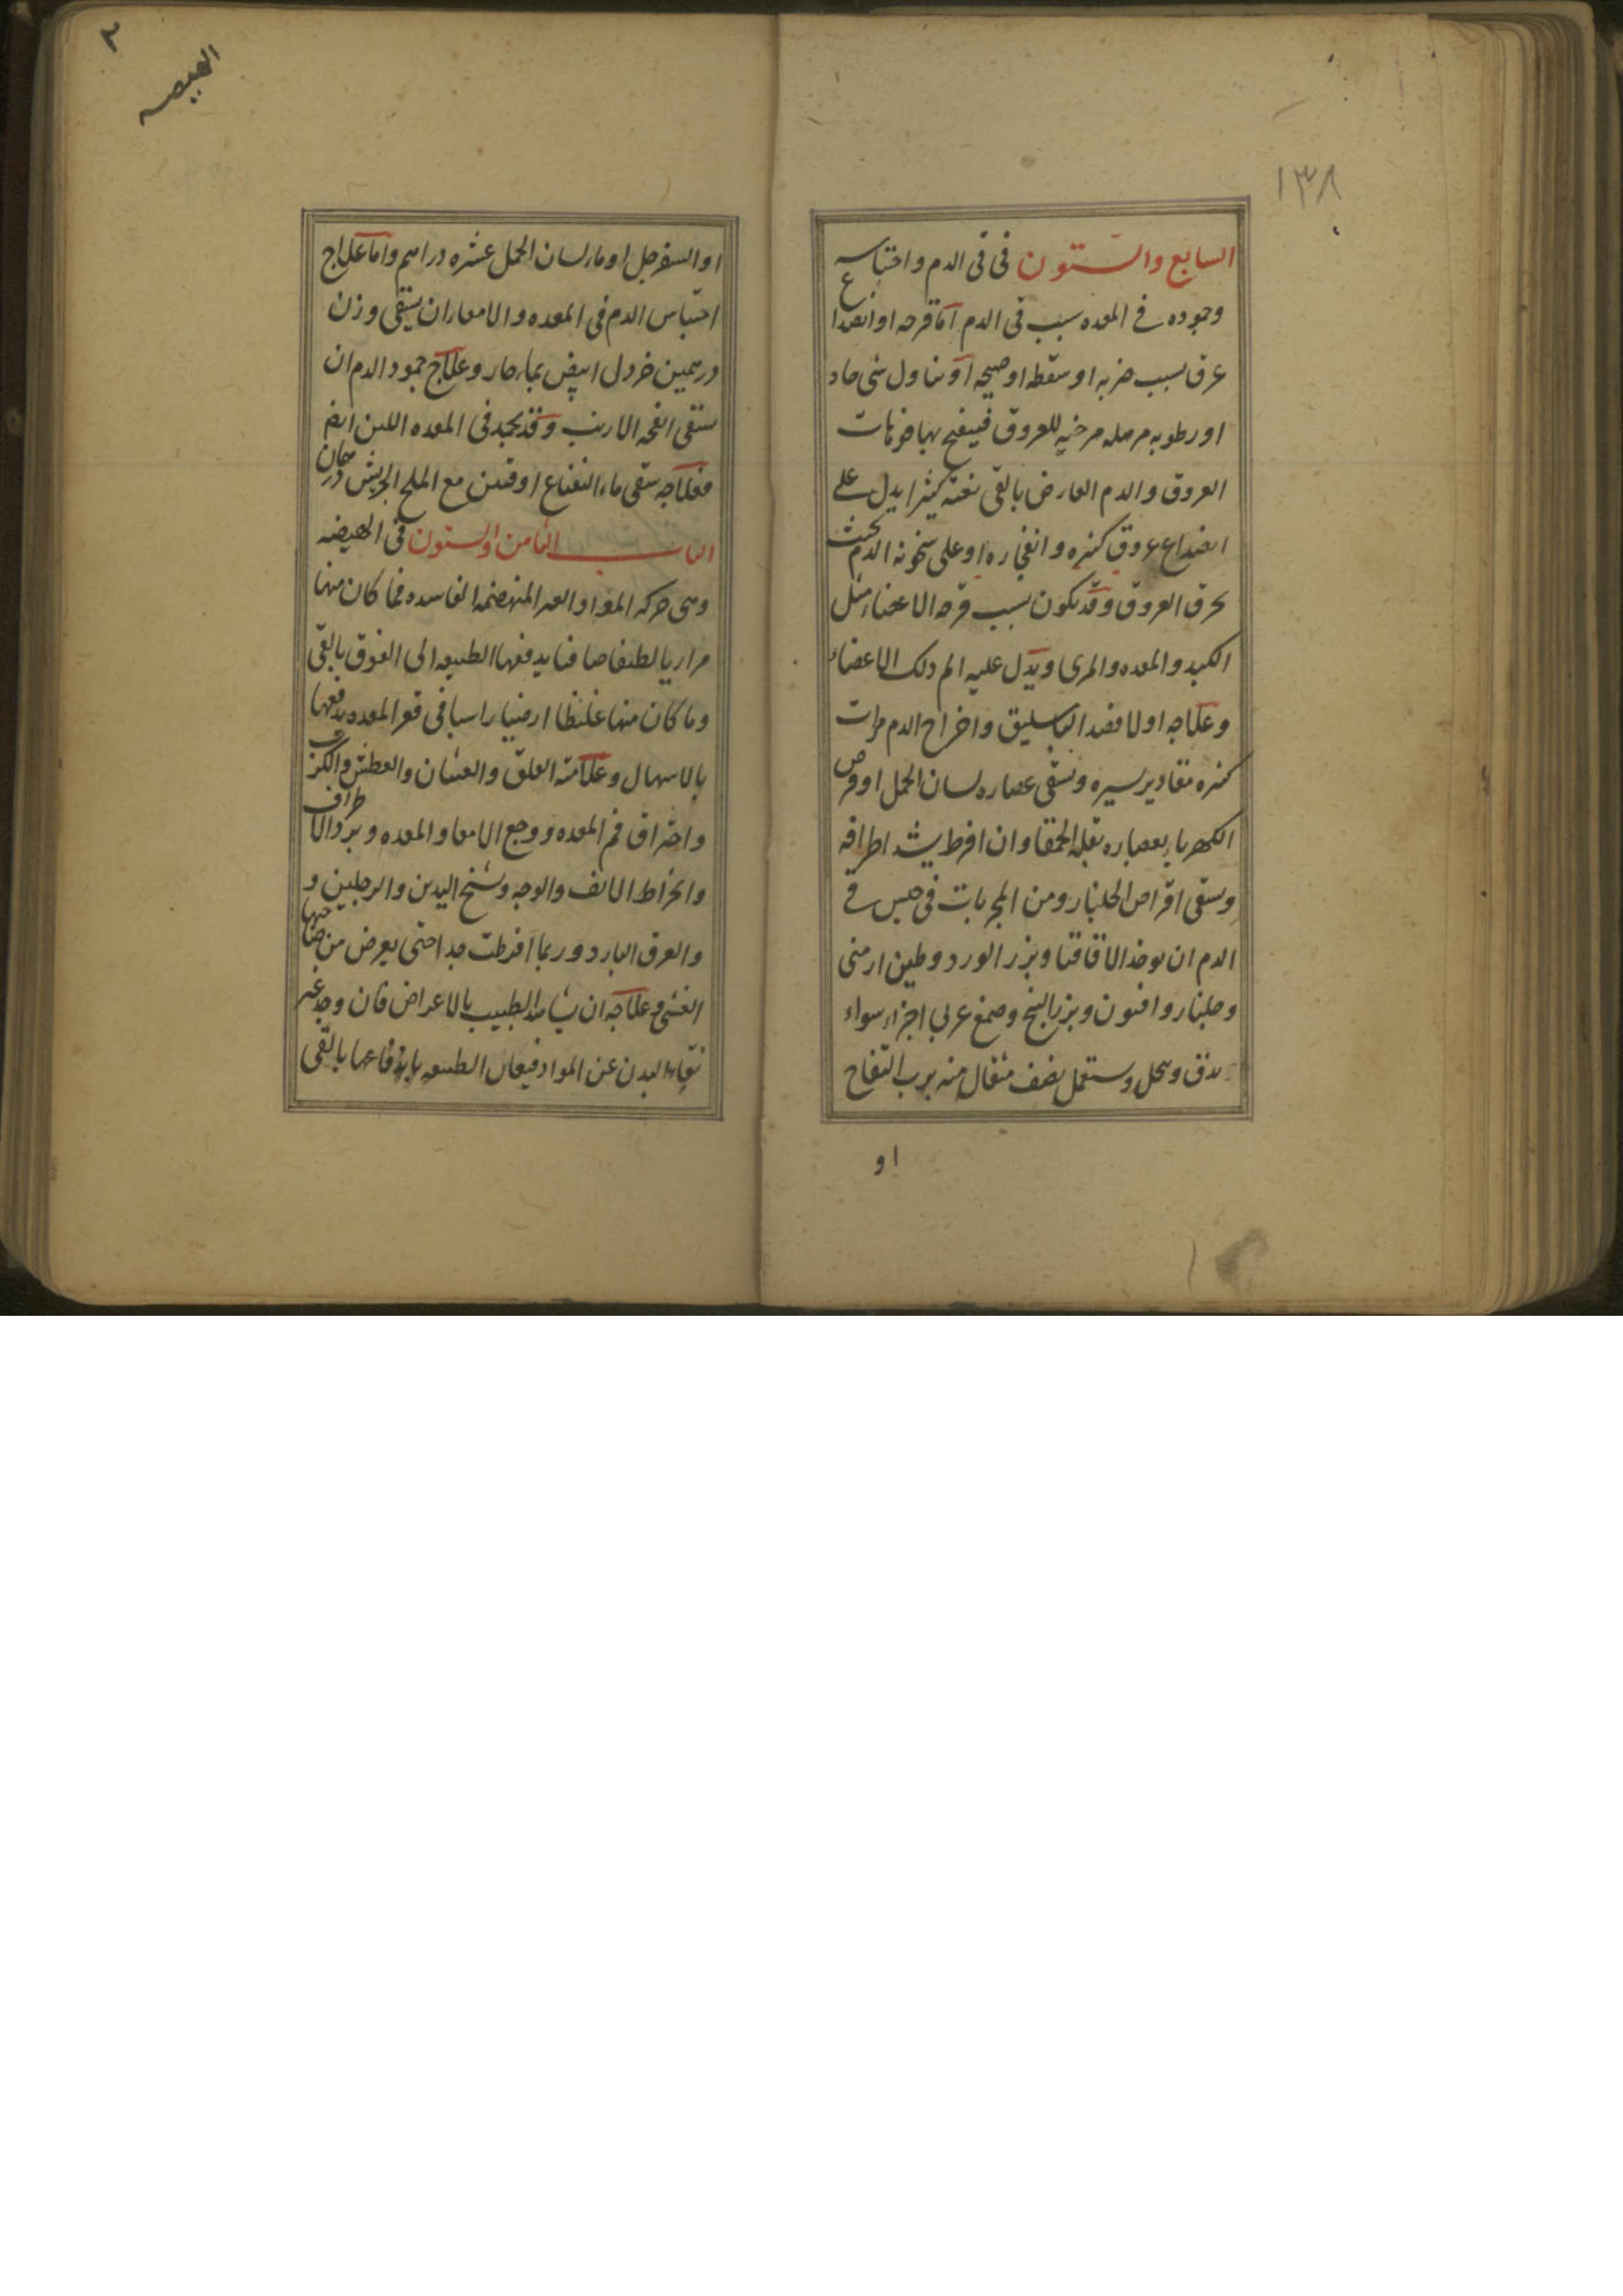 ١٣٨
السابع والستون فى قى الدم واحتباسه
وجموده فے المعده سبب قى الدم اما قرحه او انصداع
عرق بسبب ضربه او سقطه او صيحه او تناول شى حاد
او رطوبه مرهله مرخيه للعروق فينفتح بها فوهات
العروق والدم العارض بالقى بغته كثيرا يدل على
انصداع عروق كثيره وانفجاره او على سخونه الدم بحيث
يحرق العروق وقد يكون بسبب قرحه الاعضاء مثل
الكبد والمعده والمرى ويدل عليه الم ذلك الاعضاء
وعلاجه اولا فصد الباسليق واخراج الدم مرات
كثيره مقادير يسيره ويسقى عصاره لسان الحمل او قرص
الكهربا بعصاره بقله الحمقا وان افرط يشد اطرافه
ويسقى اقراص الجلنار ومن المجربات فى حبس قے
الدم ان يوخذ الاقاقيا وبزر الورد وطين ارمنى
وجلنار وافيون وبزر البنج وصمغ عربي اجزاء سواء
يدق وينخل ويستعمل نصف مثقال منه برب التفاح
او
٢
الهيضه
او السفرجل او ماء لسان الحمل عشره دراهم واما علاج
احتباس الدم فى المعده والامعاء ان يسقى وزن
درهمين خردل ابيض بماء حار وعلاج جمود الدم ان
يسقى انفحه الارنب وقد يجمد فى المعده اللبن ايضا
فعلاجه سقى ماء النعناع اوقيتين مع الملح الجريش درهمان
الباب الثامن والستون فى الهيضه
وهى حركه المواد الغير المنهضمه الفاسده فما كان منها
مراريا لطيفا صافيا يدفعها الطبيعه الى الفوق بالقى
وما كان منها غليظا ارضيا راسبا فى قعر المعده يدفعها
بالاسهال وعلامته القلق والغثيان والعطش والكرب
واحتراق فم المعده ووجع الامعا والمعده وبرد الاطراف
وانخراط الانف والوجه وتشنج اليدين والرجلين و
والعرق البارد وربما افرطت جدا حتى يعرض من صاحبها
الغشى وعلاجه ان يشاهد الطبيب بالاعراض فان وجد غير
نقاء البدن عن المواد فيعان الطبيعه باندفاعها بالقى